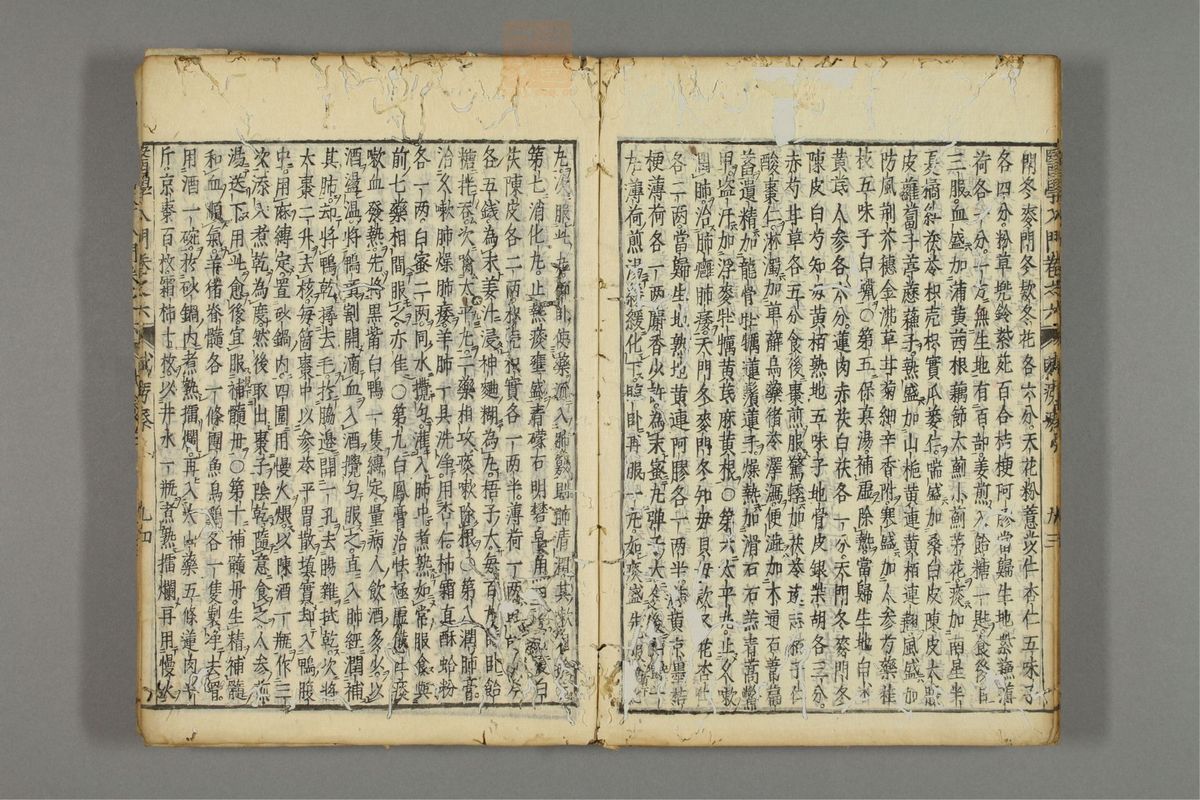 門冬麥門冬款冬花各六分天花粉薏苡仁杏仁五味子
各四分粉草兜鈴紫菀百合桔梗阿膠當歸生地紫蘇薄
荷各三分一方無生地有百部姜煎入飴糖一匙食後日
三服血盛加蒲黃茜根藕節太薊小薊茅花痰加南星半
夏橘紅茯苓枳壳枳實瓜蔞仁喘盛加桑白皮陳皮大腹
皮蘿蔔子葶藶蘇子熱盛加山梔黃連黃栢連翹風盛加
防風荆芥穗金沸草甘菊細辛香附寒盛加人參芍藥桂
枝五味子白蠟○第五保真湯補虛除熱當歸生地白术
黃芪人參各六分蓮肉赤茯白茯各一分天門冬麥門冬
陳皮白芍知母黃栢熟地五味子地骨皮銀柴胡各三分
赤芍甘草各五分食後棗煎服驚悸加茯苓遠志栢子仁
酸棗仁淋濁加萆薢烏藥猪苓澤瀉便澁加木通石葦萹
蓄遺精加龍骨牡蠣蓮鬚蓮子燥熱加滑石石羔青蒿鱉
甲盜汗加浮麥牡蠣黃芪麻黃根○第六太平丸止久嗽
潤肺治肺癰肺痿天門冬麥門冬知母貝母款冬花杏仁
各二兩當歸生地熟地黃連阿膠各一兩半蒲黃京墨桔
梗薄荷各一兩麝香少許為末蜜丸彈子大食後
薄荷煎湯緩化下臨卧再服一丸如痰盛先
醫學入門卷之六
九十三
丸次服此丸卽卧使藥流入肺竅則肺清潤其嗽
第七消化丸止熱痰壅盛青礞石明礬皂角白
茯陳皮各二兩枳壳枳實各一兩半薄荷一兩
各五錢為末姜汁浸神麯糊為丸梧子大每百丸臨卧飴
糖拌吞次噙太平丸二藥相攻痰嗽除根○第八潤肺膏
治久嗽肺燥肺痿羊肺一具洗浄用杏仁柿霜真酥蛤粉
各一兩白蜜二兩同水攪勻灌入肺中煮熟如常服食與
前七藥相間服之亦佳○第九白鳳膏治怯極虛憊吐痰
嗽血發熱先將黑嘴白鴨一隻縛定量病人飲酒多少以
酒盪溫將鴨頂割開滴血入酒攪勻服之直入肺經潤補
其肺却將鴨乾撏去毛於脇邊開一孔去腸雜拭乾次將
大棗二升去核每箇棗中以參苓平胃散填實却入鴨腹
中用麻縛定置砂鍋内四圍用慢火煨以陳酒一瓶作三
次添入煮乾為度然後取出棗子陰乾隨意食之人參
湯送下用此愈後宜服補髓丹○第十補髓丹生精補髓
和血順氣羊猪脊髓各一條團魚烏雞各一隻製浄去骨
用酒一碗於砂鍋内煮熟擂爛再入大山藥五條蓮肉半
斤京棗百枚霜柿十枚以井水一瓶煮熟擂爛再用慢火
醫學入門卷之六
九十四